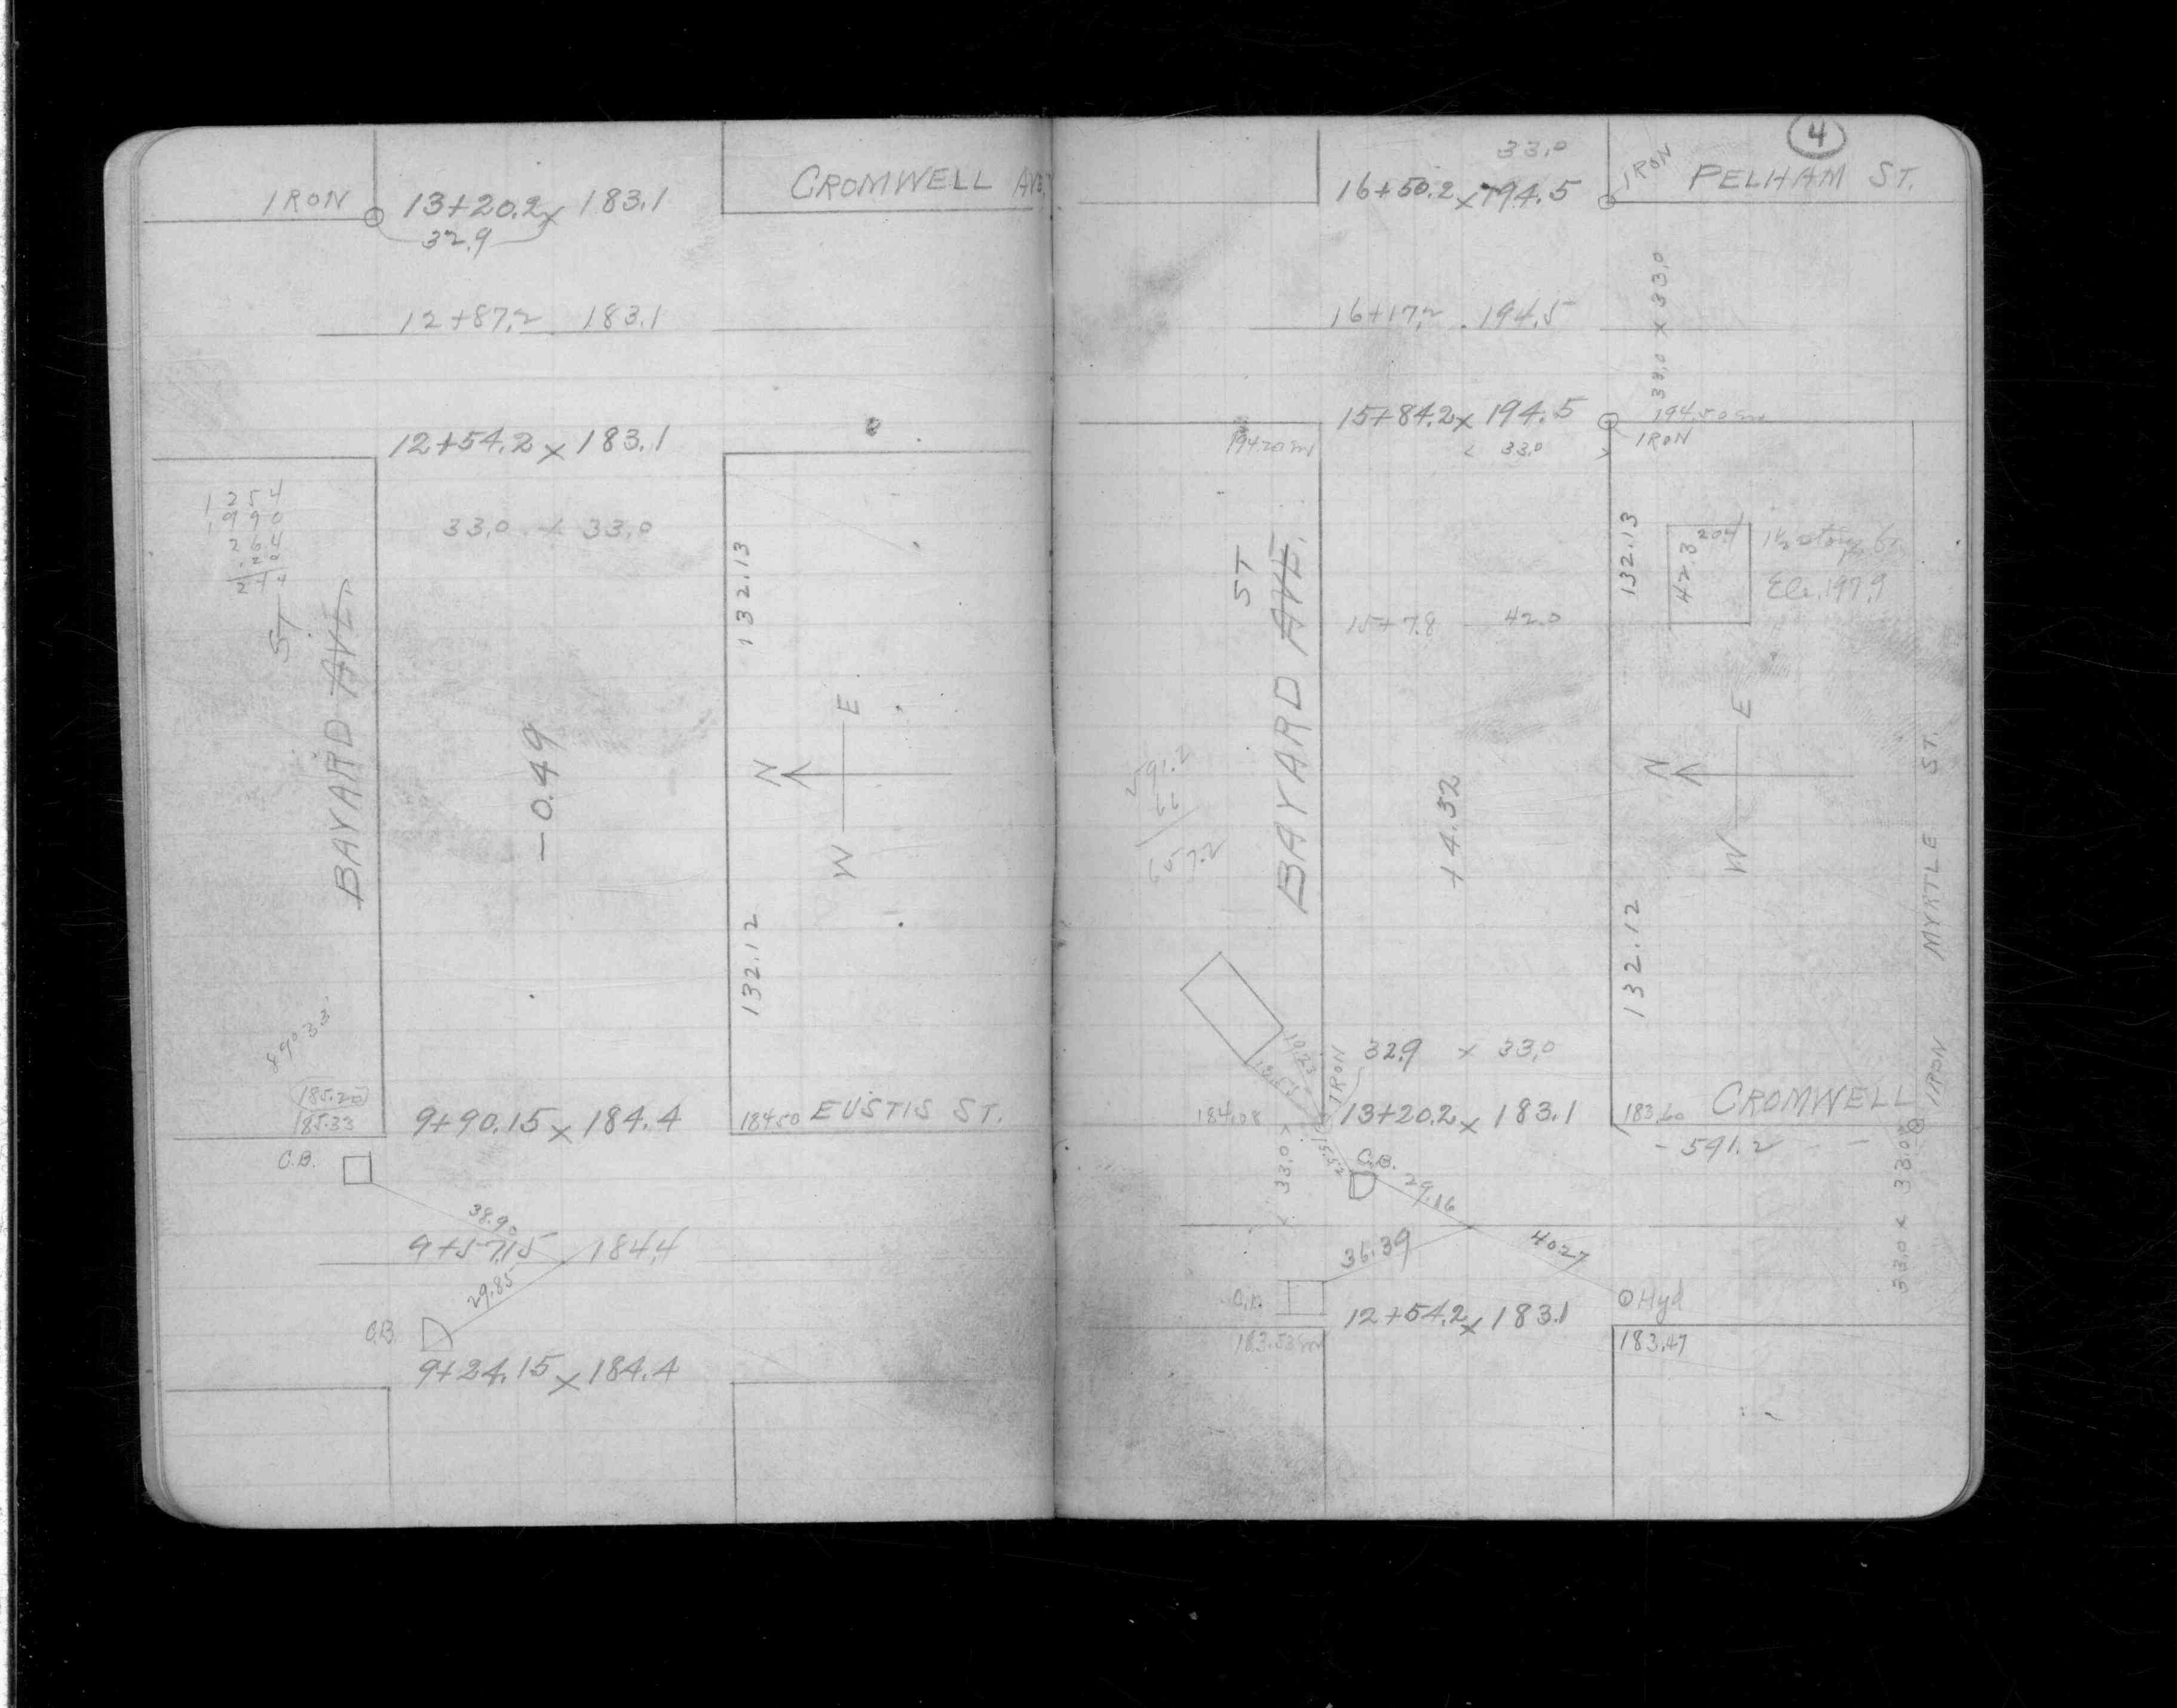 IRON 13+20.2 x 183.1 CROMWELL AVE.
32.9
12+87.2 183.1
12+54.2 x 183.1
1254
990
264
.20
244
33.0 + 33.0
132.13
ST
BAYARD AVE.
-0.49
N E W
132.12
89°33
185.20
185.33
9+90.15 x 184.4
184.50 EUSTIS ST.
C.B.
38.90
9+57.15 184.4
29.85
C.B.
9+24.15 x 184.4
4
33.0
16+50.2 x 194.5
IRON
PELHAM ST.
33.0 x 33.0
16+17.2 194.5
15+84.2 x 194.5
194.50
IRON
194.20
33.0
132.13
42.3
204
1½ story
Ele. 197.9
ST
BAYARD AVE.
15+7.8 42.0
N E W
591.2
66
657.2
+4.32
132.12
MYRTLE ST.
IRON
19.23
IRON
32.9 x 33.0
184.08
13+20.2 x 183.1
183.60
CROMWELL
591.2
33.0
C.B.
29.16
36.39
40.27
33.0 x 33.0
Hyd
12+54.2 x 183.1
183.47